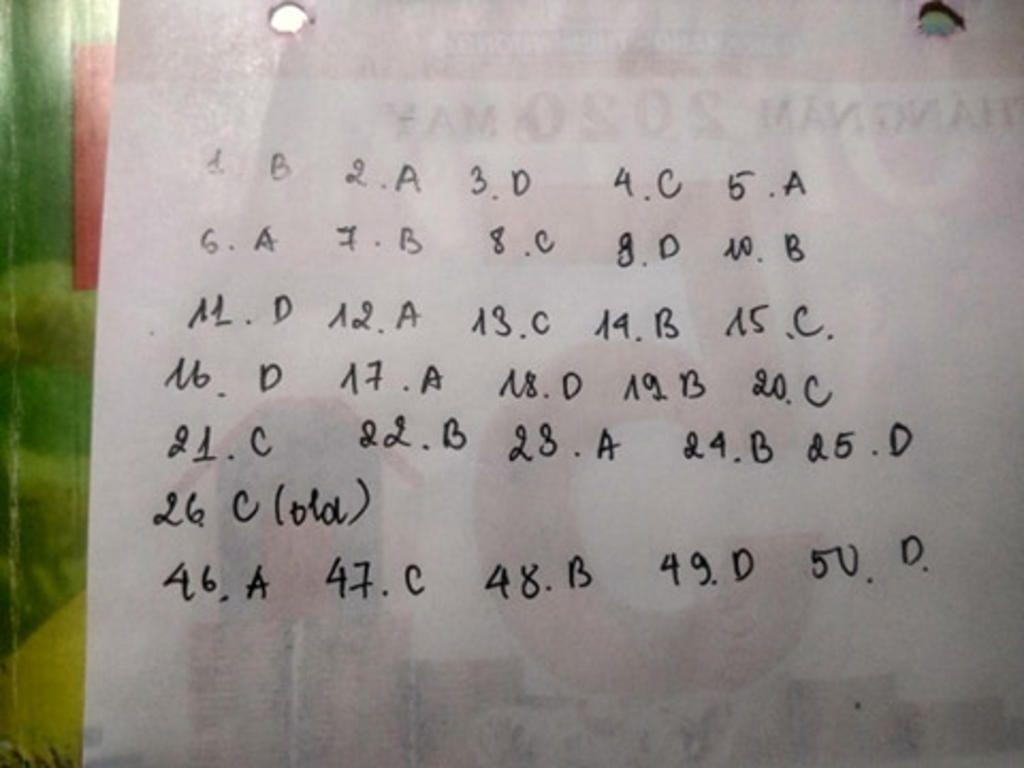 THÁNG NĂM 2020 MAY
1. B 2. A 3. D 4. C 5. A
6. A 7. B 8. C 9. D 10. B
11. D 12. A 13. C 14. B 15. C.
16. D 17. A 18. D 19. B 20. C
21. C 22. B 23. A 24. B 25. D
26. C (old)
46. A 47. C 48. B 49. D 50. D.